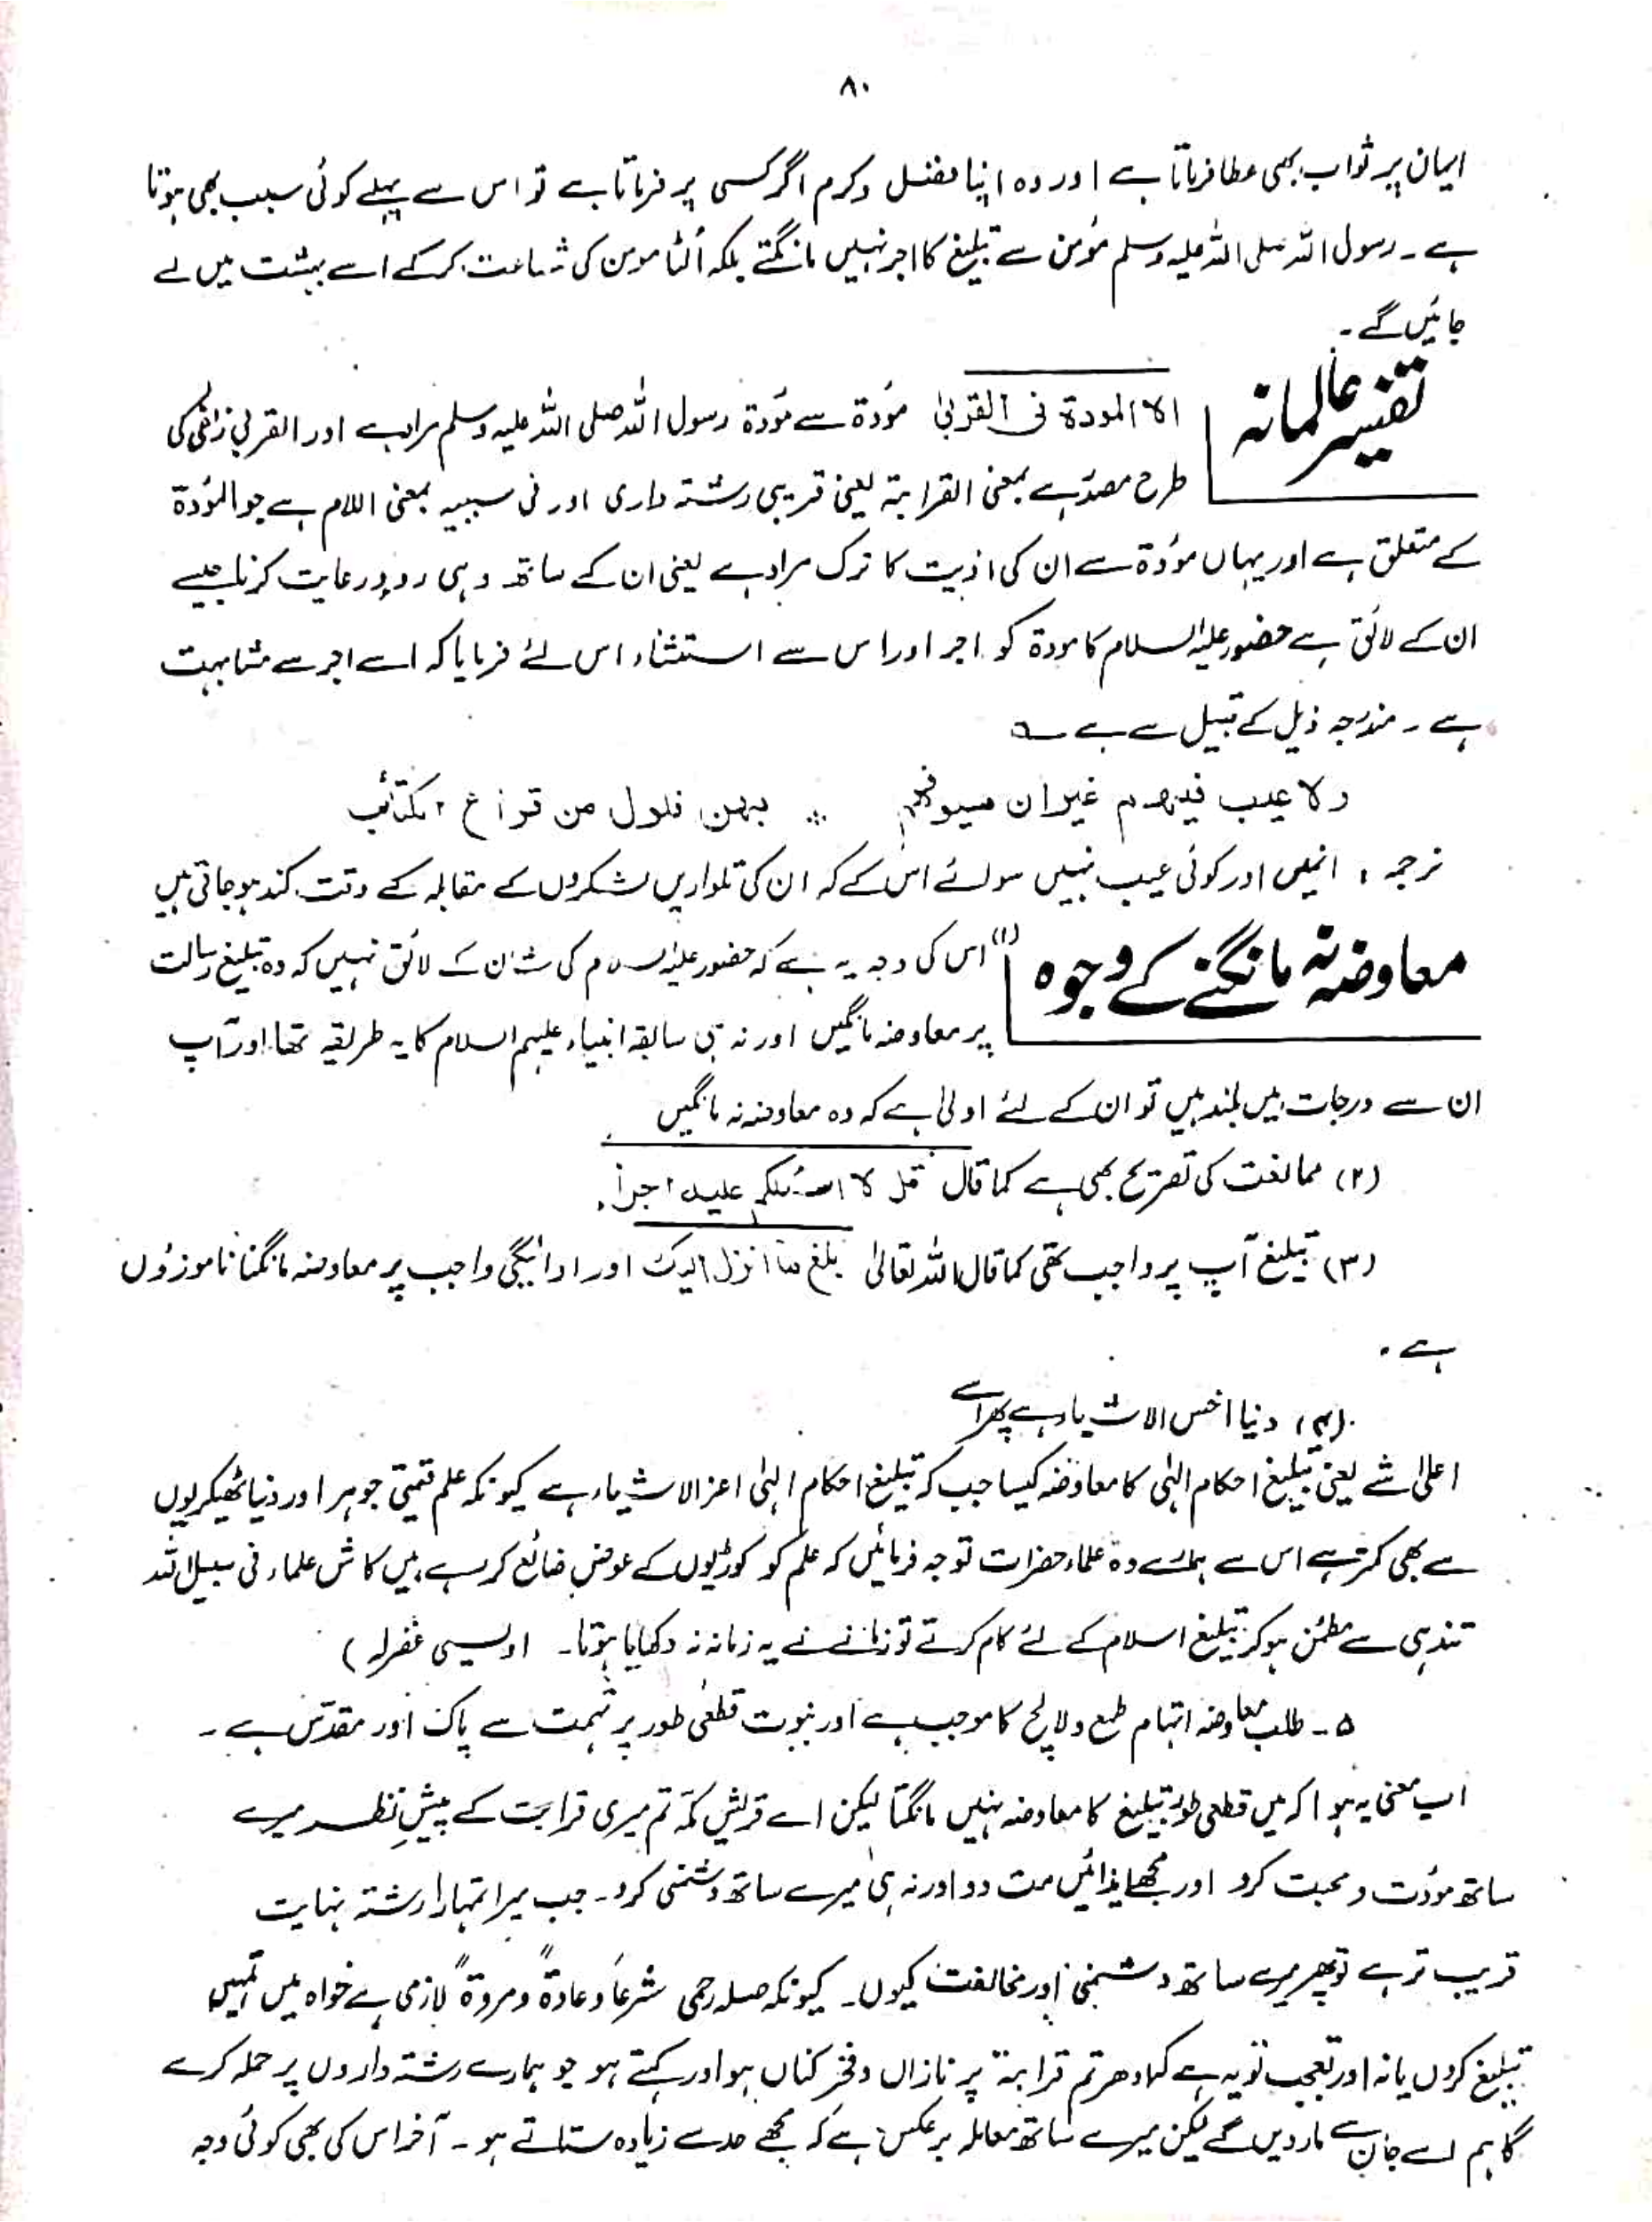 ۸۰
ایمان پر ثواب بھی عطا فرماتا ہے اور وہ اپنا فضل وکرم اگر کسی پر فرماتا ہے تو اس سے پہلے کوئی سبب بھی ہوتا
ہے ۔ رسول اللہ صلی اللہ علیہ وسلم مؤمن سے تبلیغ کا اجر نہیں مانگتے بلکہ اُلٹا مومن کی شفاعت کرکے اسے بہشت میں لے
جائیں گے ۔
تفسیر عالمانہ
الا المودۃ فی القربیٰ مؤدۃ سے مؤدۃ رسول اللہ صلی اللہ علیہ وسلم مراد ہے اور القربیٰ زلفیٰ کی
طرح مصدر ہے بمعنی القرابۃ یعنی قریبی رشتہ داری اور فی سببیہ بمعنی اللام ہے جو المؤدۃ
کے متعلق ہے اور یہاں مؤدۃ سے ان کی اذیت کا ترک مراد ہے یعنی ان کے ساتھ وہی رو ورعایت کرنا جیسے
ان کے لائق ہے حضور علیہ السلام کا مودۃ کو اجر اور اس سے استثناء اس لئے فرمایا کہ اسے اجر سے مشابہت
ہے ۔ مندرجہ ذیل کے قبیل سے ہے ؎
ولا عیب فیھم غیر ان سیوفھم ؞ بھن فلول من قراع الکتائب
ترجمہ ، انہیں اور کوئی عیب نہیں سوائے اس کے کہ ان کی تلواریں لشکروں کے مقابلہ کے وقت کند ہوجاتی ہیں
معاوضہ نہ مانگنے کے وجوہ
(۱) اس کی وجہ یہ ہے کہ حضور علیہ السلام کی شان کے لائق نہیں کہ وہ تبلیغ رسالت
پر معاوضہ مانگیں اور نہ ہی سابقہ انبیاء علیہم السلام کا یہ طریقہ تھا اور آپ
ان سے درجات میں بلند ہیں تو ان کے لئے اولیٰ ہے کہ وہ معاوضہ نہ مانگیں
(۲) ممانعت کی تصریح بھی ہے کما قال قل لا اسئلکم علیہ اجراً ۔
(۳) تبلیغ آپ پر واجب تھی کما قال اللہ تعالیٰ بلغ ما انزل الیک اور ادائیگی واجب پر معاوضہ مانگنا ناموزوں
ہے ۔
(۴) دنیا اخس الاشیاء ہے پھر اسے
اعلیٰ شے یعنی تبلیغ احکام الٰہی کا معاوضہ کیسا جب کہ تبلیغ احکام الٰہی اعز الاشیاء ہے کیونکہ علم قیمتی جوہر اور دنیا ٹھیکریوں
سے بھی کمتر ہے اس سے ہمارے وہ علماء حضرات توجہ فرمائیں کہ علم کو کوڑیوں کے عوض ضائع کر رہے ہیں کاش علماء فی سبیل اللہ
تندہی سے مطمئن ہوکر تبلیغ اسلام کے لئے کام کرتے تو زمانے نے یہ زمانہ نہ دکھایا ہوتا۔ اویسی غفرلہ )
۵ ۔ طلب معاوضہ اتہام طمع ولالچ کا موجب ہے اور نبوت قطعی طور پر تہمت سے پاک اور مقدّس ہے ۔
اب معنی یہ ہوا کہ میں قطعی طور تبلیغ کا معاوضہ نہیں مانگتا لیکن اے قریش مکّہ تم میری قرابت کے پیشِ نظر میرے
ساتھ مؤدت ومحبت کرو اور مجھے ایذائیں مت دو اور نہ ہی میرے ساتھ دشمنی کرو۔ جب میرا تمہارا رشتہ نہایت
قریب تر ہے تو پھر میرے ساتھ دشمنی اور مخالفت کیوں۔ کیونکہ صلہ رحمی شرعاً وعادۃً ومروۃً لازمی ہے خواہ میں تمہیں
تبلیغ کروں یا نہ اور تعجب تو یہ ہے کہ ادھر تم قرابۃ پر نازاں وفخر کناں ہو اور کہتے ہو جو ہمارے رشتہ داروں پر حملہ کرے
گا ہم اسے جان سے ماردیں گے لیکن میرے ساتھ معاملہ برعکس ہے کہ مجھے حد سے زیادہ ستاتے ہو ۔ آخر اس کی بھی کوئی وجہ